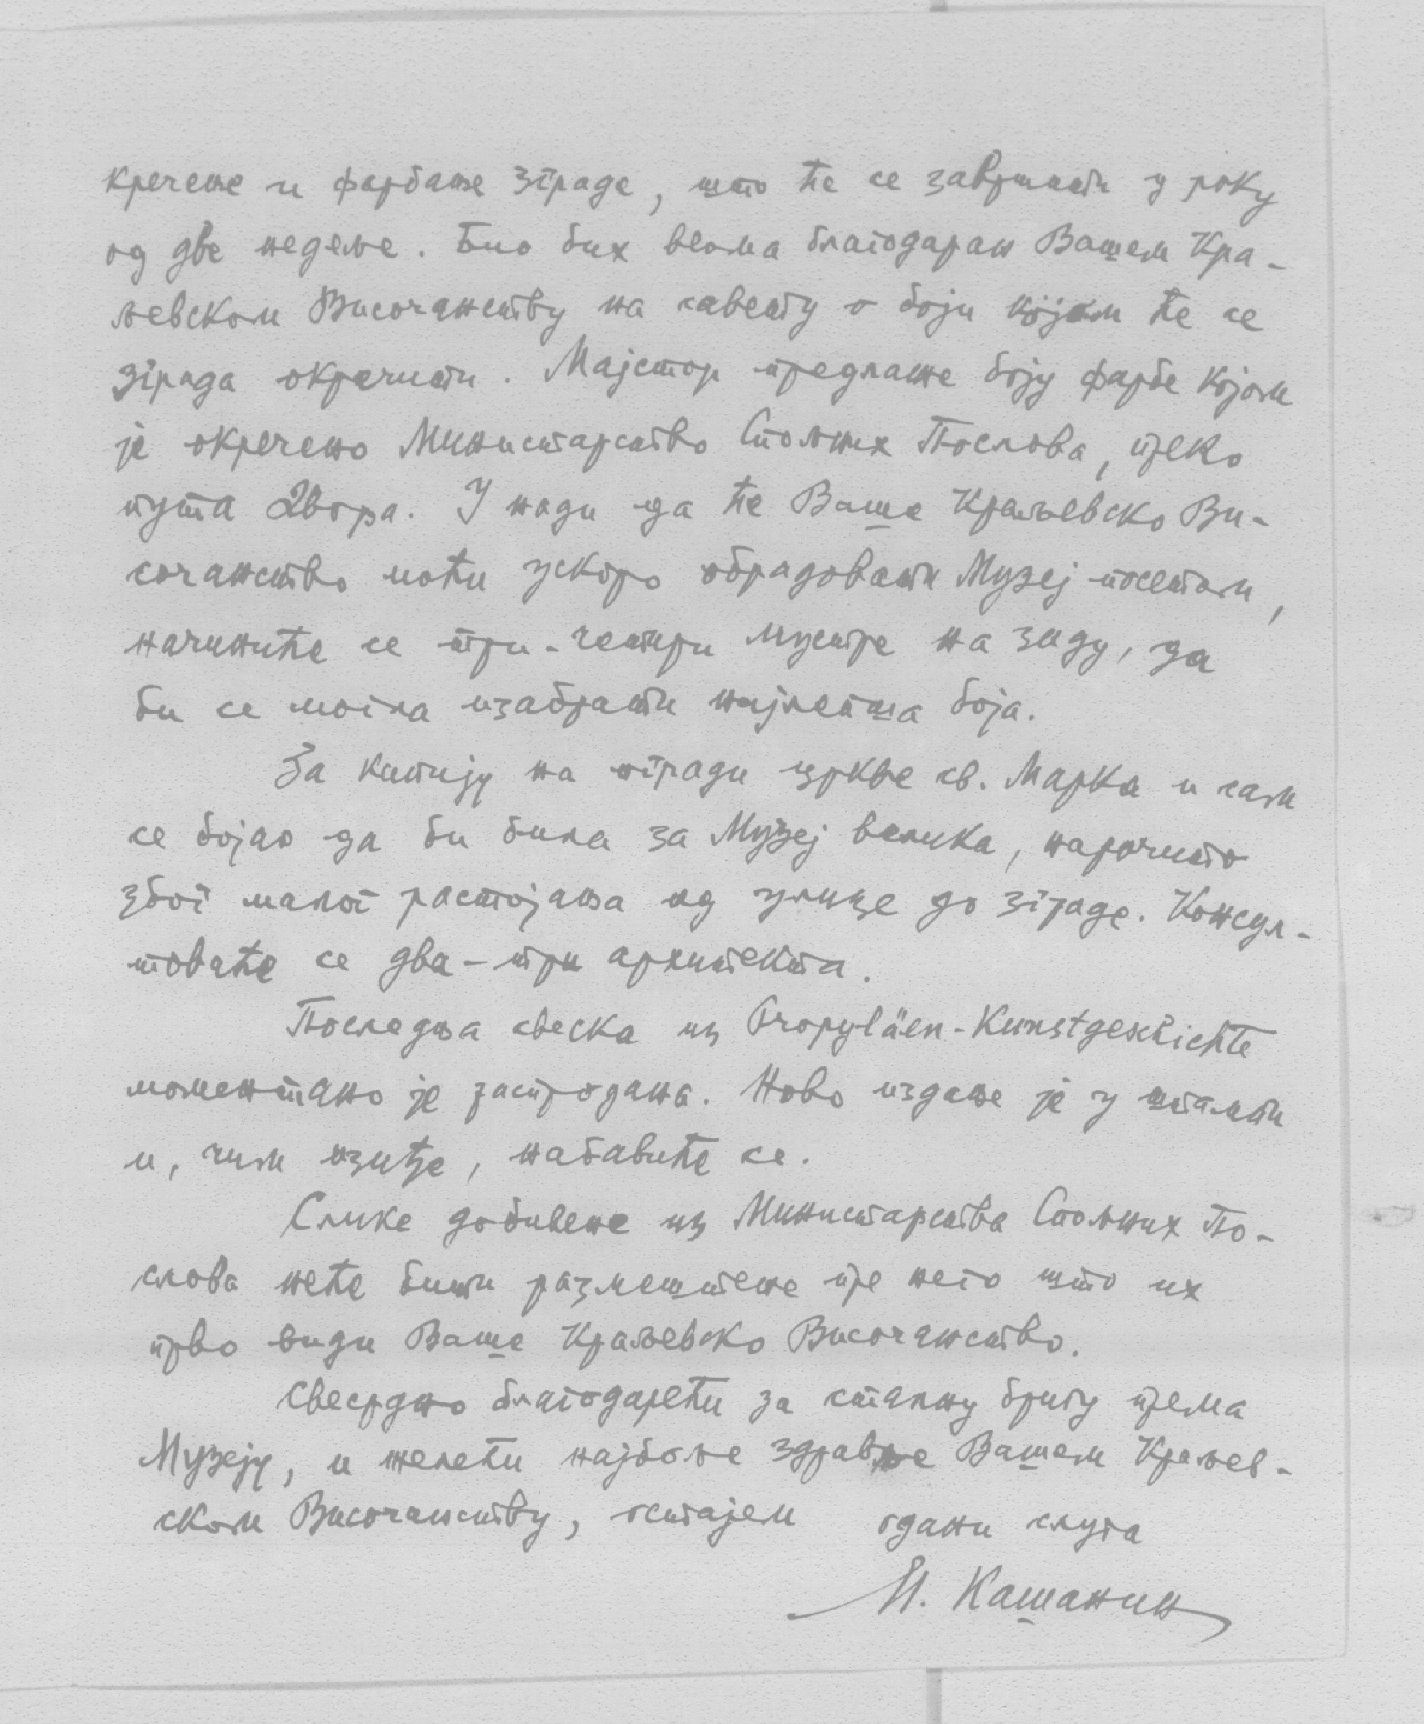 кречење и фарбање зграде, што ће се завршити у року
од две недеље. Био бих веома благодаран Вашем Кра-
љевском Височанству на савету о боји којом ће се
зграда окречити. Мајстор предлаже боју фарбе којом
је окречено Министарство Спољних Послова, преко
пута Двора. У нади да ће Ваше Краљевско Ви-
сочанство моћи ускоро обрадовати Музеј посетом,
начиниће се три-четири мустре на зиду, да
би се могла изабрати најлепша боја.
За капију на огради цркве св. Марка и сам
се бојао да би била за Музеј велика, нарочито
због малог растојања од улице до зграде. Консул-
товаће се два-три архитекта.
Последња свеска из Propyläen-Kunstgeschichte
моментано је распродана. Ново издање је у штампи
и, чим изиђе, набавиће се.
Слике добивене из Министарства Спољних По-
слова неће бити размештене пре него што их
прво види Ваше Краљевско Височанство.
Свесрдно благодарећи за сталну бригу према
Музеју, и желећи најбоље здравље Вашем Краљев-
ском Височанству, остајем одани слуга
М. Кашанин